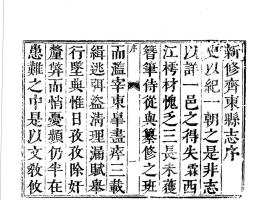 新修齊東縣志序
史以紀一朝之是非志
以詳一邑之得失霖西
江樗材愧乏三長未獲
簪筆侍從與纂修之班
序
而濫宰東盡瘁三載
緝逃弭盜清理漏賦舉
行墜典惟日孜孜除奸
釐弊而憂頻仍半在
患難之中是以文敎攸